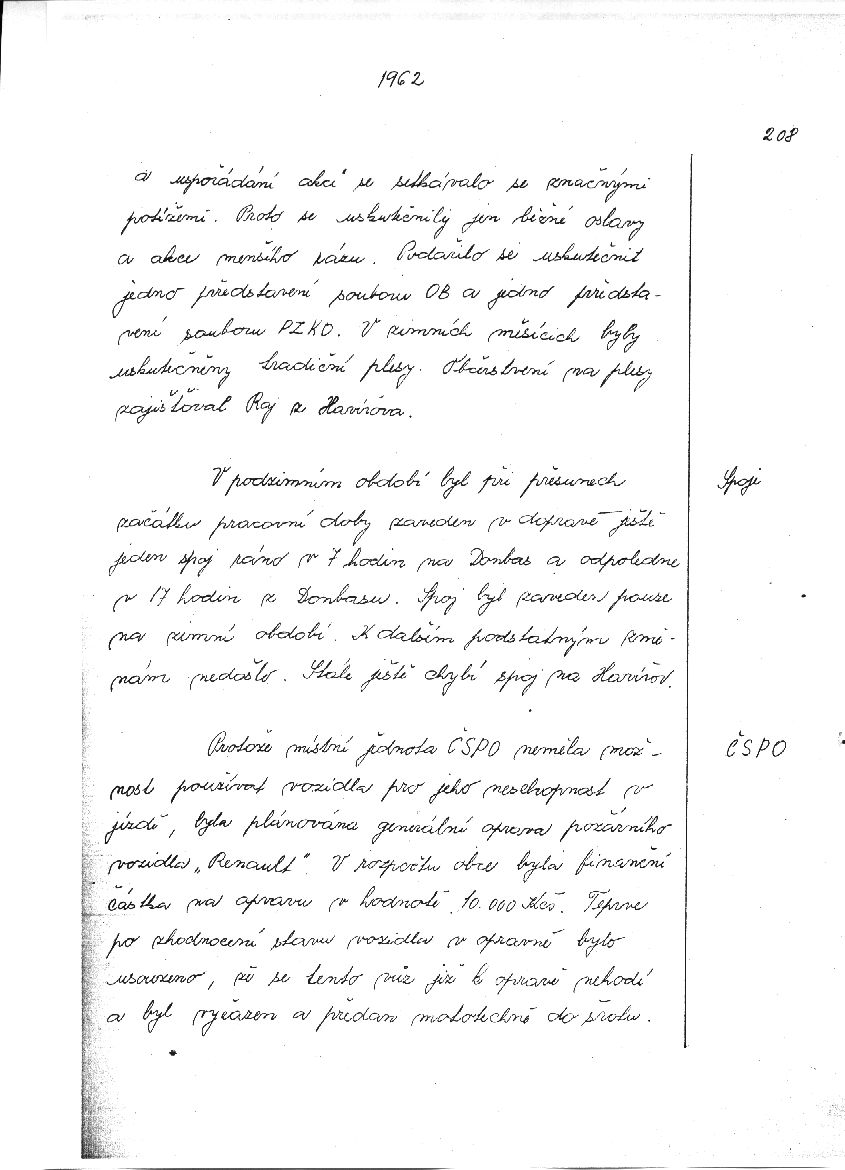 1962
208
a uspořádání akcí se setkávalo se značnými
potížemi. Proto se uskutečnily jen běžné oslavy
a akce menšího rázu. Podařilo se uskutečnit
jedno představení souboru OB a jedno předsta-
vení souboru PZKO. V zimních měsících byly
uskutečněny tradiční plesy. Občerstvení na plesy
zajišťoval Raj z Havířova.
V podzimním období byl při přesunech
Spoje
začátku pracovní doby zaveden v dopravě ještě
jeden spoj ráno v 7 hodin na Donbas a odpoledne
v 17 hodin z Donbasu. Spoj byl zaveden pouze
na zimní období. K dalším podstatným změ-
nám nedošlo. Stále ještě chybí spoj na Havířov.
Protože místní jednota ČSPO neměla mož-
ČSPO
nost používat vozidla pro jeho neschopnost v
jízdě, byla plánována generální oprava požárního
vozidla „Renault". V rozpočtu obce byla finanční
částka na opravu v hodnotě 10.000 Kčs. Teprve
po zhodnocení stavu vozidla v opravně bylo
usouzeno, že se tento vůz již k opravě nehodí
a byl vyřazen a předán mototechně do šrotu.